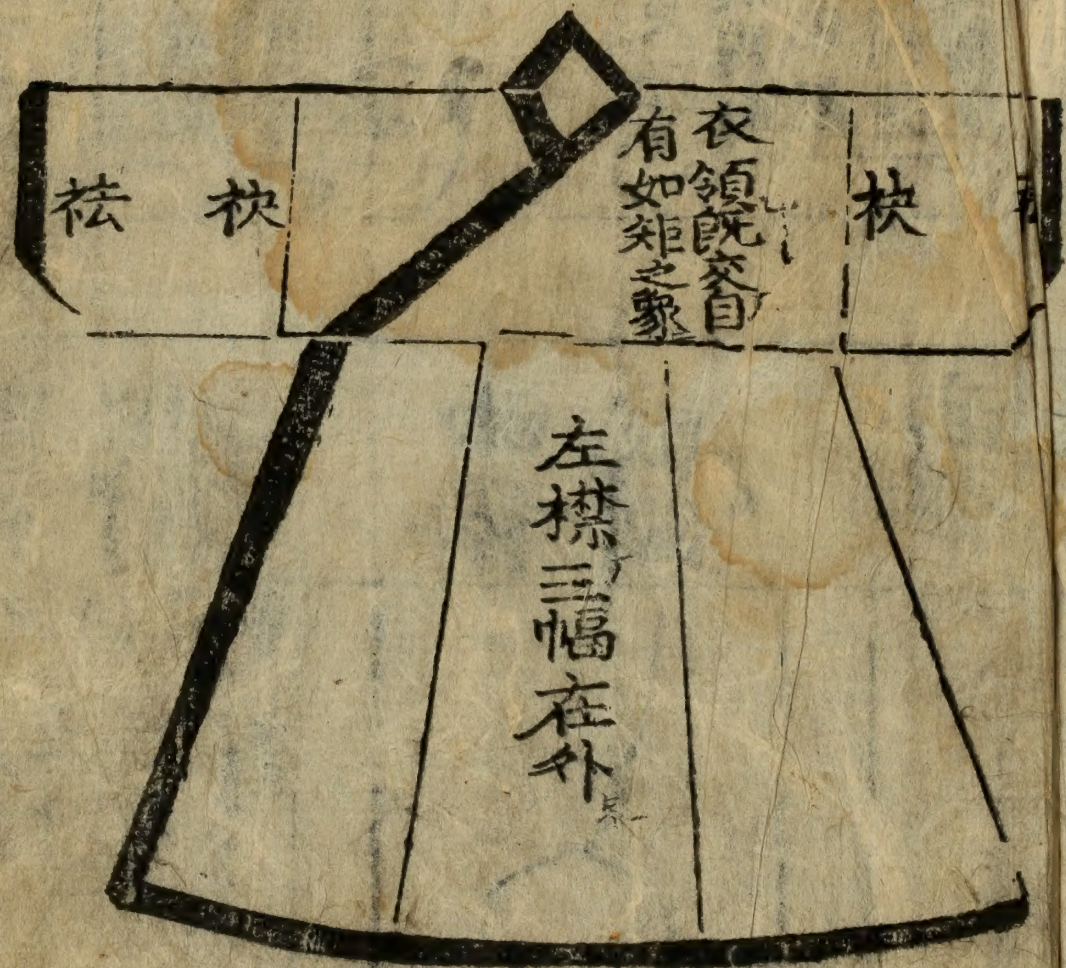 袂
衣領既交自
有如矩之象
袂
袪
左襟三幅在外